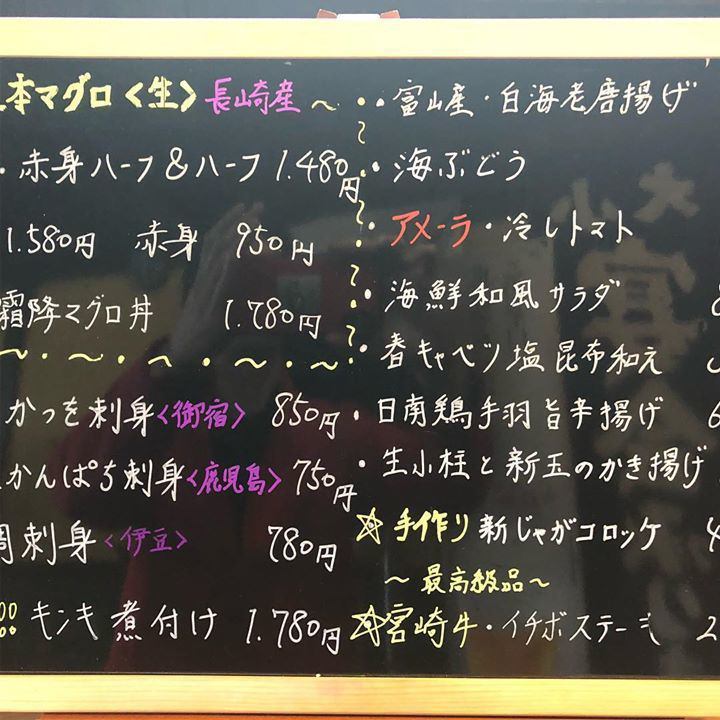 本マグロ〈生〉長崎産 〜
・赤身ハーフ&ハーフ 1.480円
1.580円 赤身 950円
霜降マグロ丼 1.780円
〜・〜・〜・〜・〜・
かつを刺身〈御宿〉 850円
かんぱち刺身〈鹿児島〉 750円
刺身〈伊豆〉 780円
キンキ煮付け 1.780円
・富山産・白海老唐揚げ
・海ぶどう
・アメーラ・冷しトマト
・海鮮和風サラダ
・春キャベツ塩昆布和え
・日南鶏手羽旨辛揚げ 6
・生小柱と新玉のかき揚げ
☆手作り新じゃがコロッケ 4
〜最高級品〜
☆宮崎牛・イチボステーキ 2